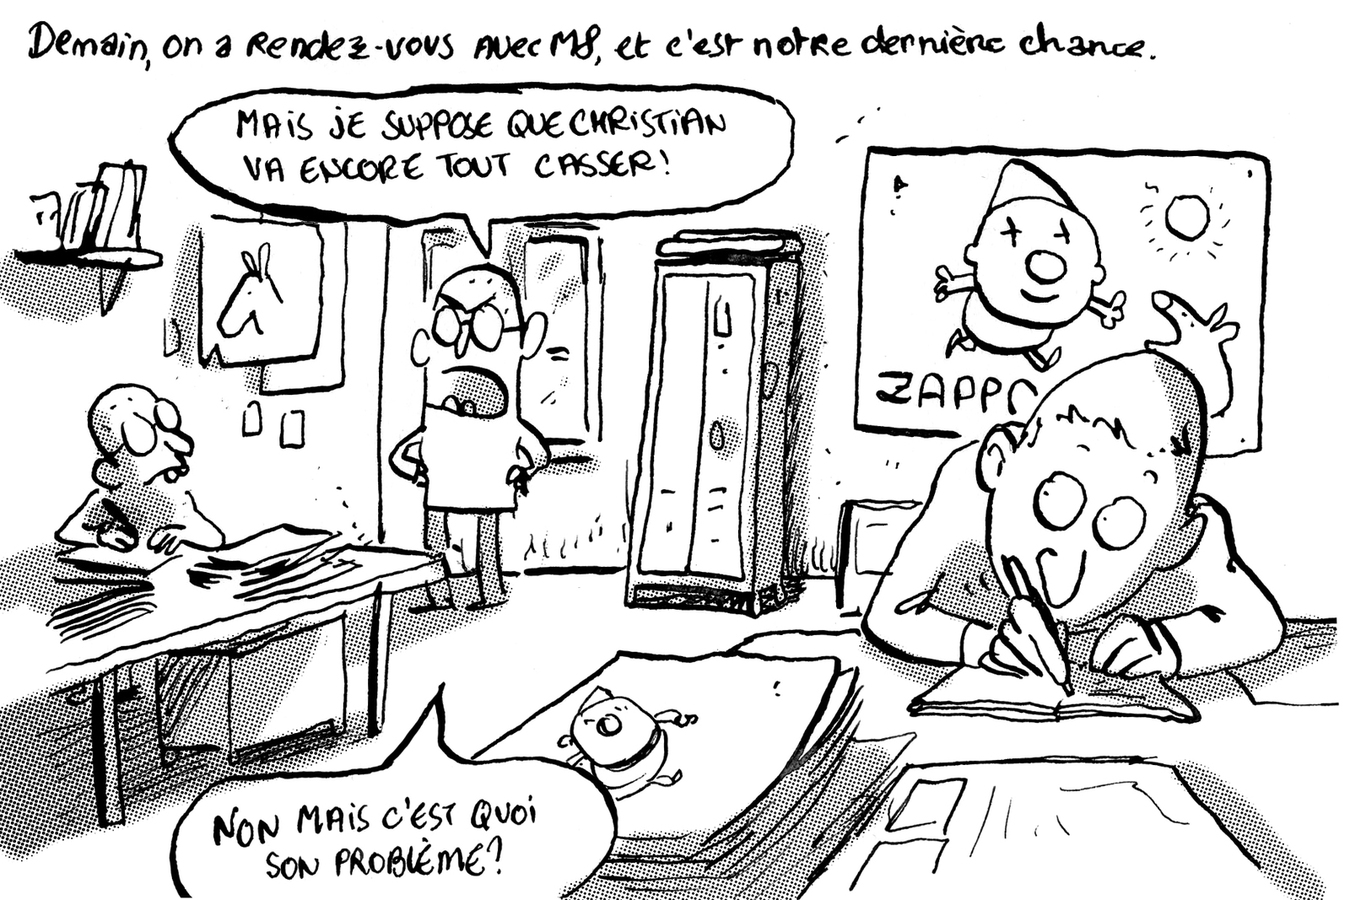 Demain, on a rendez-vous avec M8, et c'est notre dernière chance.
MAIS JE SUPPOSE QUE CHRISTIAN
VA ENCORE TOUT CASSER!
ZAPPO
NON MAIS C'EST QUOI
SON PROBLÈME?